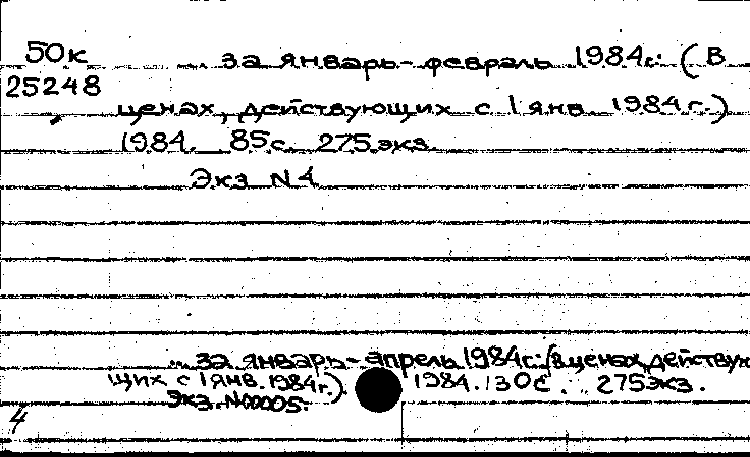 50к ... за январь-февраль 1984г. (в
25248
ценах, действующих с 1 янв. 1984г.)
1984. 85с. 275экз.
Экз N4
... за январь-апрель 1984г. (в ценах, действую
щих с 1 янв. 1984г.). 1984. 130с. 275экз.
Экз. N00005.
4